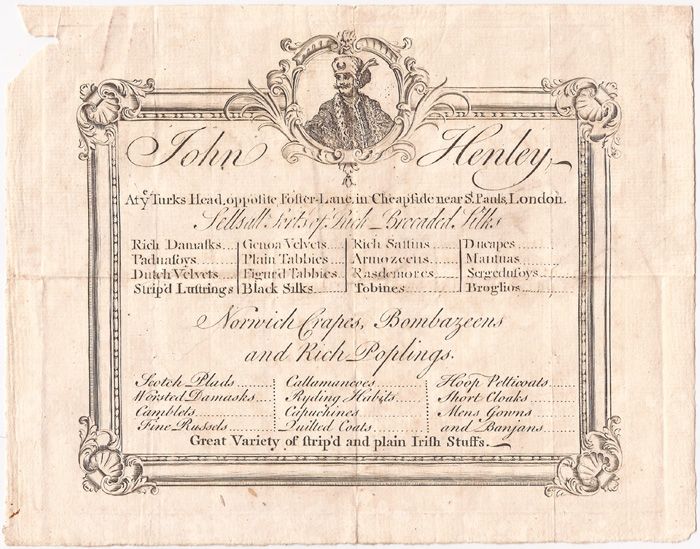 John Henley,
At yͤ Turks Head, oppoſite Foſter-Lane, in Cheapſide near Sͭ. Pauls, London.
Sells all Sorts of Rich Brocaded Silks
Rich Damaſks Genoa Velvets Rich Sattins Ducapes
Paduaſoys Plain Tabbies Armozeens Mantuas
Dutch Velvets Figur'd Tabbies Rasdemores Sergeduſoys
Strip'd Luſtrings Black Silks Tobines Broglios
Norwich Crapes, Bombazeens
and Rich Poplings.
Scotch Plads Callamancoes Hoop Petticoats
Worsted Damasks Ryding Habits Short Cloaks
Camblets Capuchines Mens Gowns
Fine Russels Quilted Coats and Banjans
Great Variety of ſtrip'd and plain Iriſh Stuffs.